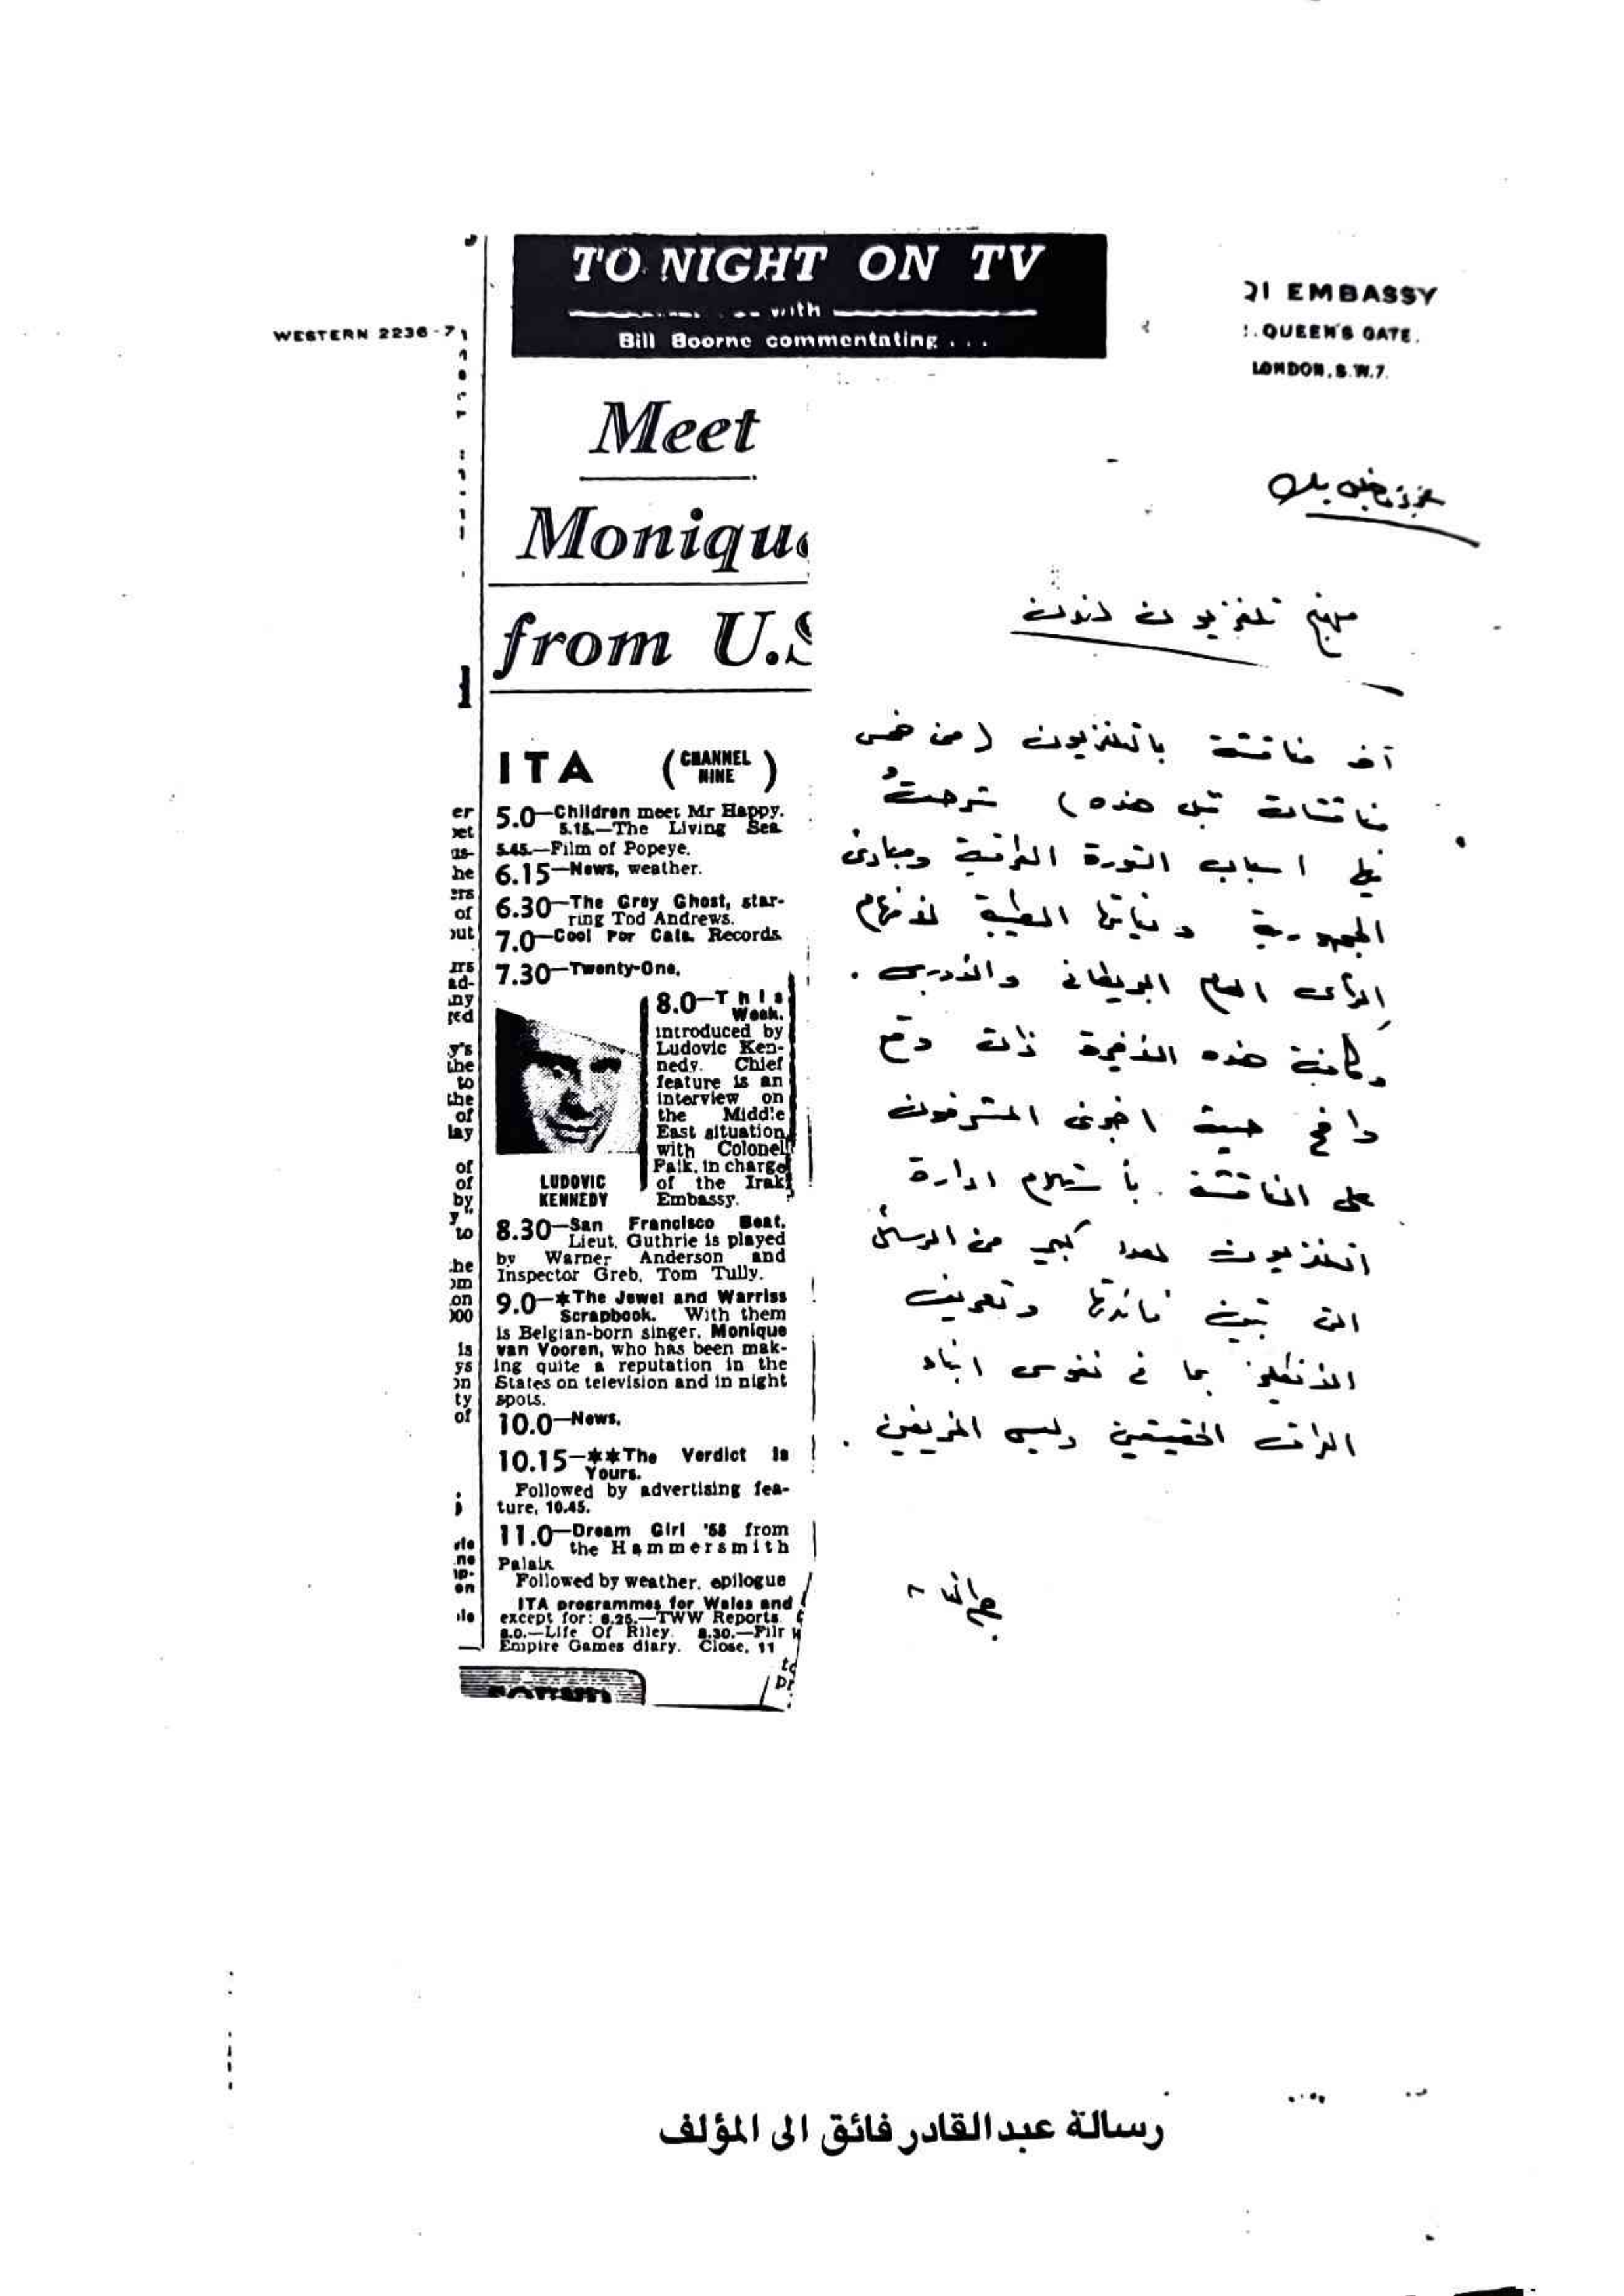 TO NIGHT ON TV
with
Bill Boorne commentating . . .
EMBASSY
QUEEN'S GATE.
LONDON, S.W.7.
WESTERN 2236-7
Meet
Monique
from U.S
ITA (CHANNEL NINE)
5.0—Children meet Mr Happy.
5.15.—The Living Sea
5.45.—Film of Popeye.
6.15—News, weather.
6.30—The Grey Ghost, star-
ring Tod Andrews.
7.0—Cool For Cats. Records
7.30—Twenty-One.
8.0—This
Week.
introduced by
Ludovic Ken-
nedy. Chief
feature is an
interview on
the Middle
East situation
with Colonel
Paik, in charge
of the Irak
Embassy.
LUDOVIC
KENNEDY
8.30—San Francisco Beat.
Lieut. Guthrie is played
by Warner Anderson and
Inspector Greb, Tom Tully.
9.0—*The Jewel and Warriss
Scrapbook. With them
is Belgian-born singer, Monique
van Vooren, who has been mak-
ing quite a reputation in the
States on television and in night
spots.
10.0—News.
10.15—**The Verdict Is
Yours.
Followed by advertising fea-
ture, 10.45.
11.0—Dream Girl '58 from
the Hammersmith
Palais
Followed by weather, epilogue
ITA programmes for Wales and
except for: 6.25.—TWW Reports.
8.0.—Life Of Riley. 8.30.—Filr
Empire Games diary. Close, 11
منهج تلفزيون لندن
آخر مناقشة بالتلفزيون (من خمس
مناقشات قبل هذه) شرحتُ
فيها اسباب الثورة العراقية ومبادئ
الجمهورية ونياتها الطيبة لافهام
الرأى العام البريطانى والاوربى .
وكانت هذه الاخيرة ذات وقع
حيث اخبرنى المشرفون
على المناقشة بأستلام ادارة
التلفزيون لعدد كبير من الرسائل
التى تبين فائدتها وتعريف
الانكليز بما فى نفوس ابناء
العراق الحقيقين وليس المزيفين .
رسالة عبدالقادر فائق الى المؤلف